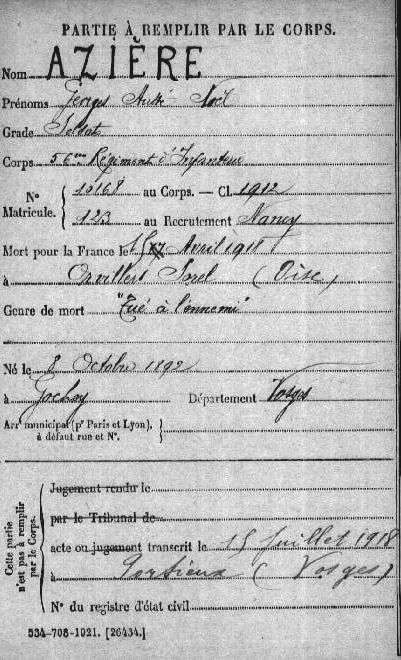 PARTIE À REMPLIR PAR LE CORPS.
Nom AZIÈRE
Prénoms Georges André Noël
Grade Soldat
Corps 56ème Régiment d'Infanterie
N° Matricule. { 10168 au Corps. — Cl. 1912
123 au Recrutement Nancy
Mort pour la France le 15 Avril 1918
à Orvillers Sorel (Oise)
Genre de mort "Tué à l'ennemi"
Né le 8 Octobre 1892
à Département Vosges
Arr municipal (pr Paris et Lyon), à défaut rue et N°. }
Cette partie n'est pas à remplir par le Corps. {
Jugement rendu le
par le Tribunal de
acte ou jugement transcrit le 15 Juillet 1918
à (Vosges)
N° du registre d'état civil
534-708-1921. [26434.]